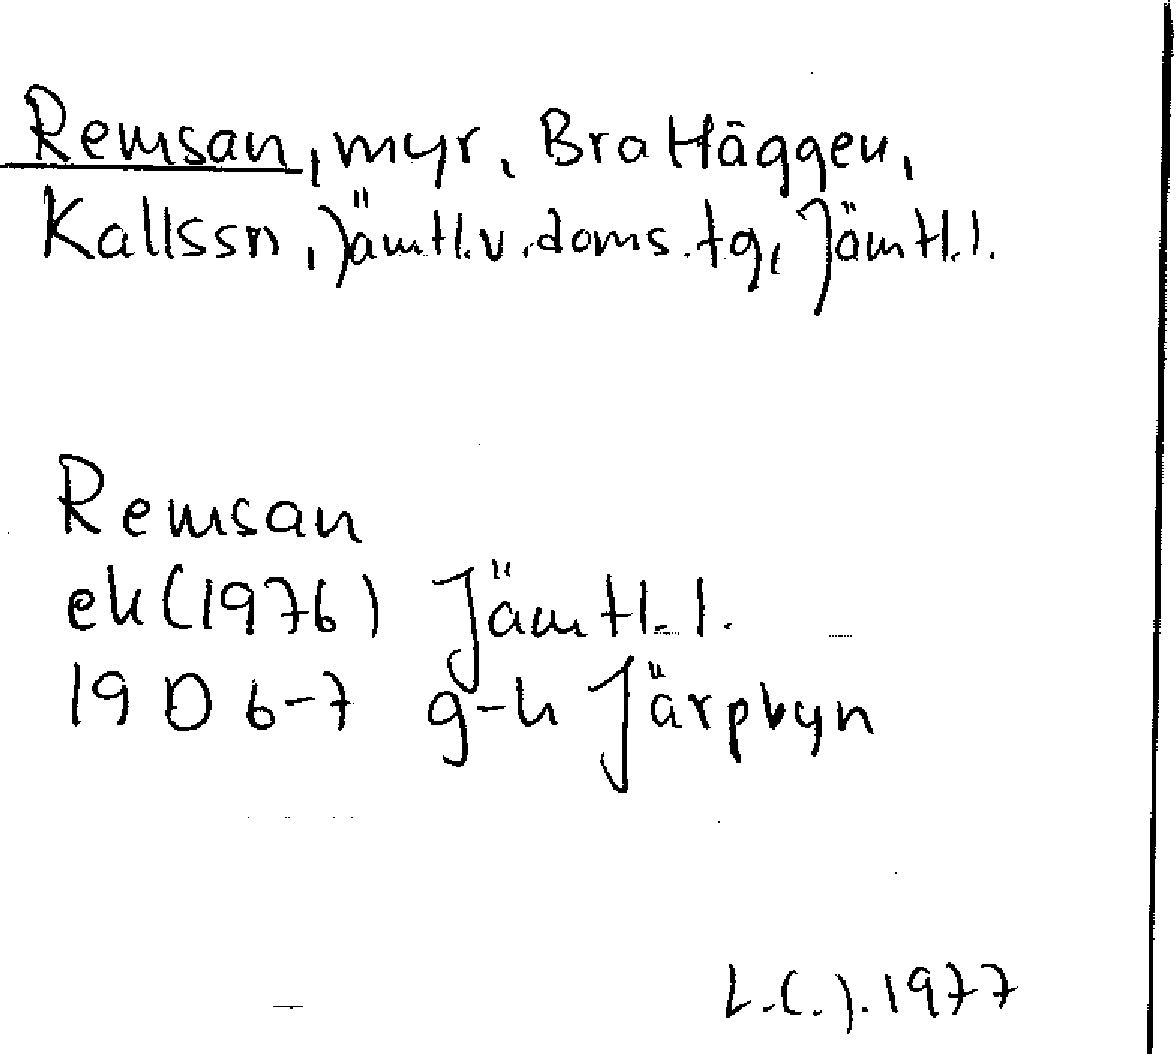 Remsan, myr, Brattäggen,
Kallssn, Jämtl.v.doms.tg, Jämtl.l.
Remsan
ek(1976) Jämtl.l.
19 D 6-7 g-h Järpbyn
L.C.J.1977